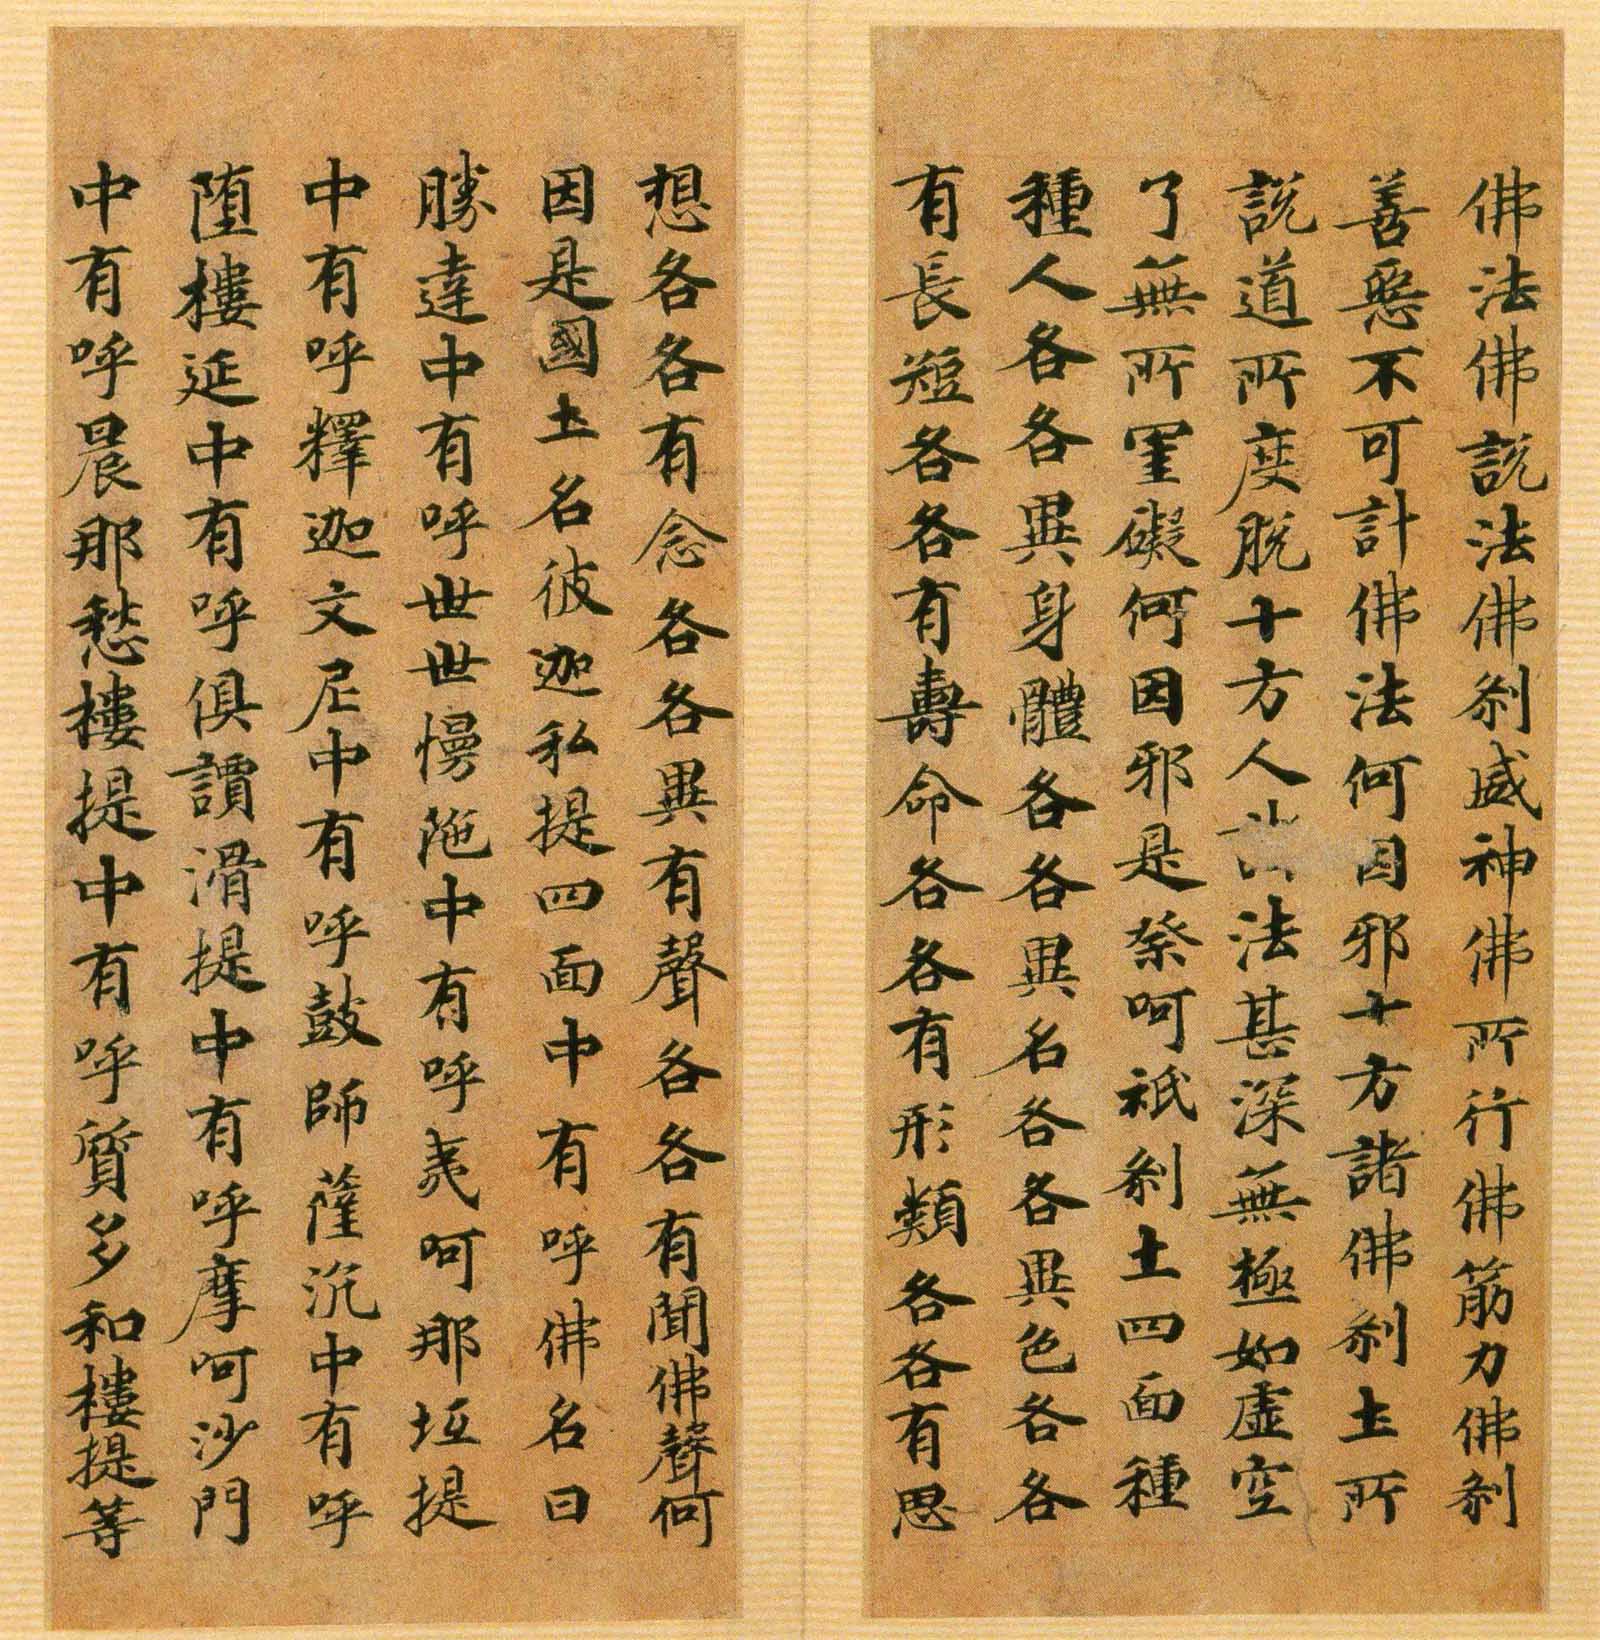 佛法佛說法佛剎威神佛所行佛筋力佛剎
善惡不可計佛法何因邪十方諸佛剎土所
說道所度脫十方人法甚深無極如虛空
了無所罣礙何因邪是祭呵祇剎土四面種
種人各各異身體各各異名各各異色各各
有長短各各有壽命各各有形類各各有思
想各各有念各各異有聲各各有聞佛聲何
因是國土名彼迦私提四面中有呼佛名曰
勝達中有呼世世慢陁中有呼夷呵那坘提
中有呼釋迦文尼中有呼鼓師薩沉中有呼
墮樓延中有呼俱譚滑提中有呼摩呵沙門
中有呼晨那愁樓提中有呼質多和樓提等